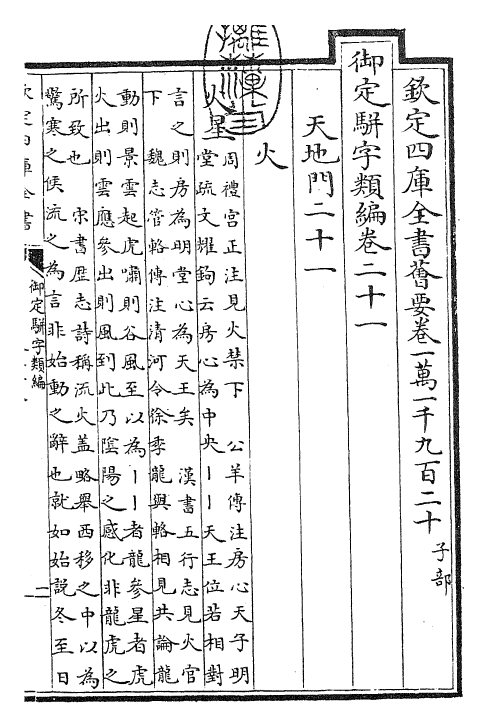 欽定四庫全書薈要卷一萬一千九百二十 子部
御定駢字類編卷二十一
天地門二十一
火
火星 周禮宮正注見火禁下 公羊傳注房心天子明
堂疏文耀鉤云房心為中央丨丨天王位若相對
言之則房為明堂心為天王矣 漢書五行志見火官
下 魏志管輅傳注清河令徐季龍與輅相見共論龍
動則景雲起虎嘯則谷風至以為丨丨者龍參星者虎
火出則雲應參出則風到此乃陰陽之感化非龍虎之
所致也 宋書歷志詩稱流火盖略舉西移之中以為
驚寒之候流之為言非始動之辭也就如始說冬至日
欽定四庫全書
御定駢字類編
一